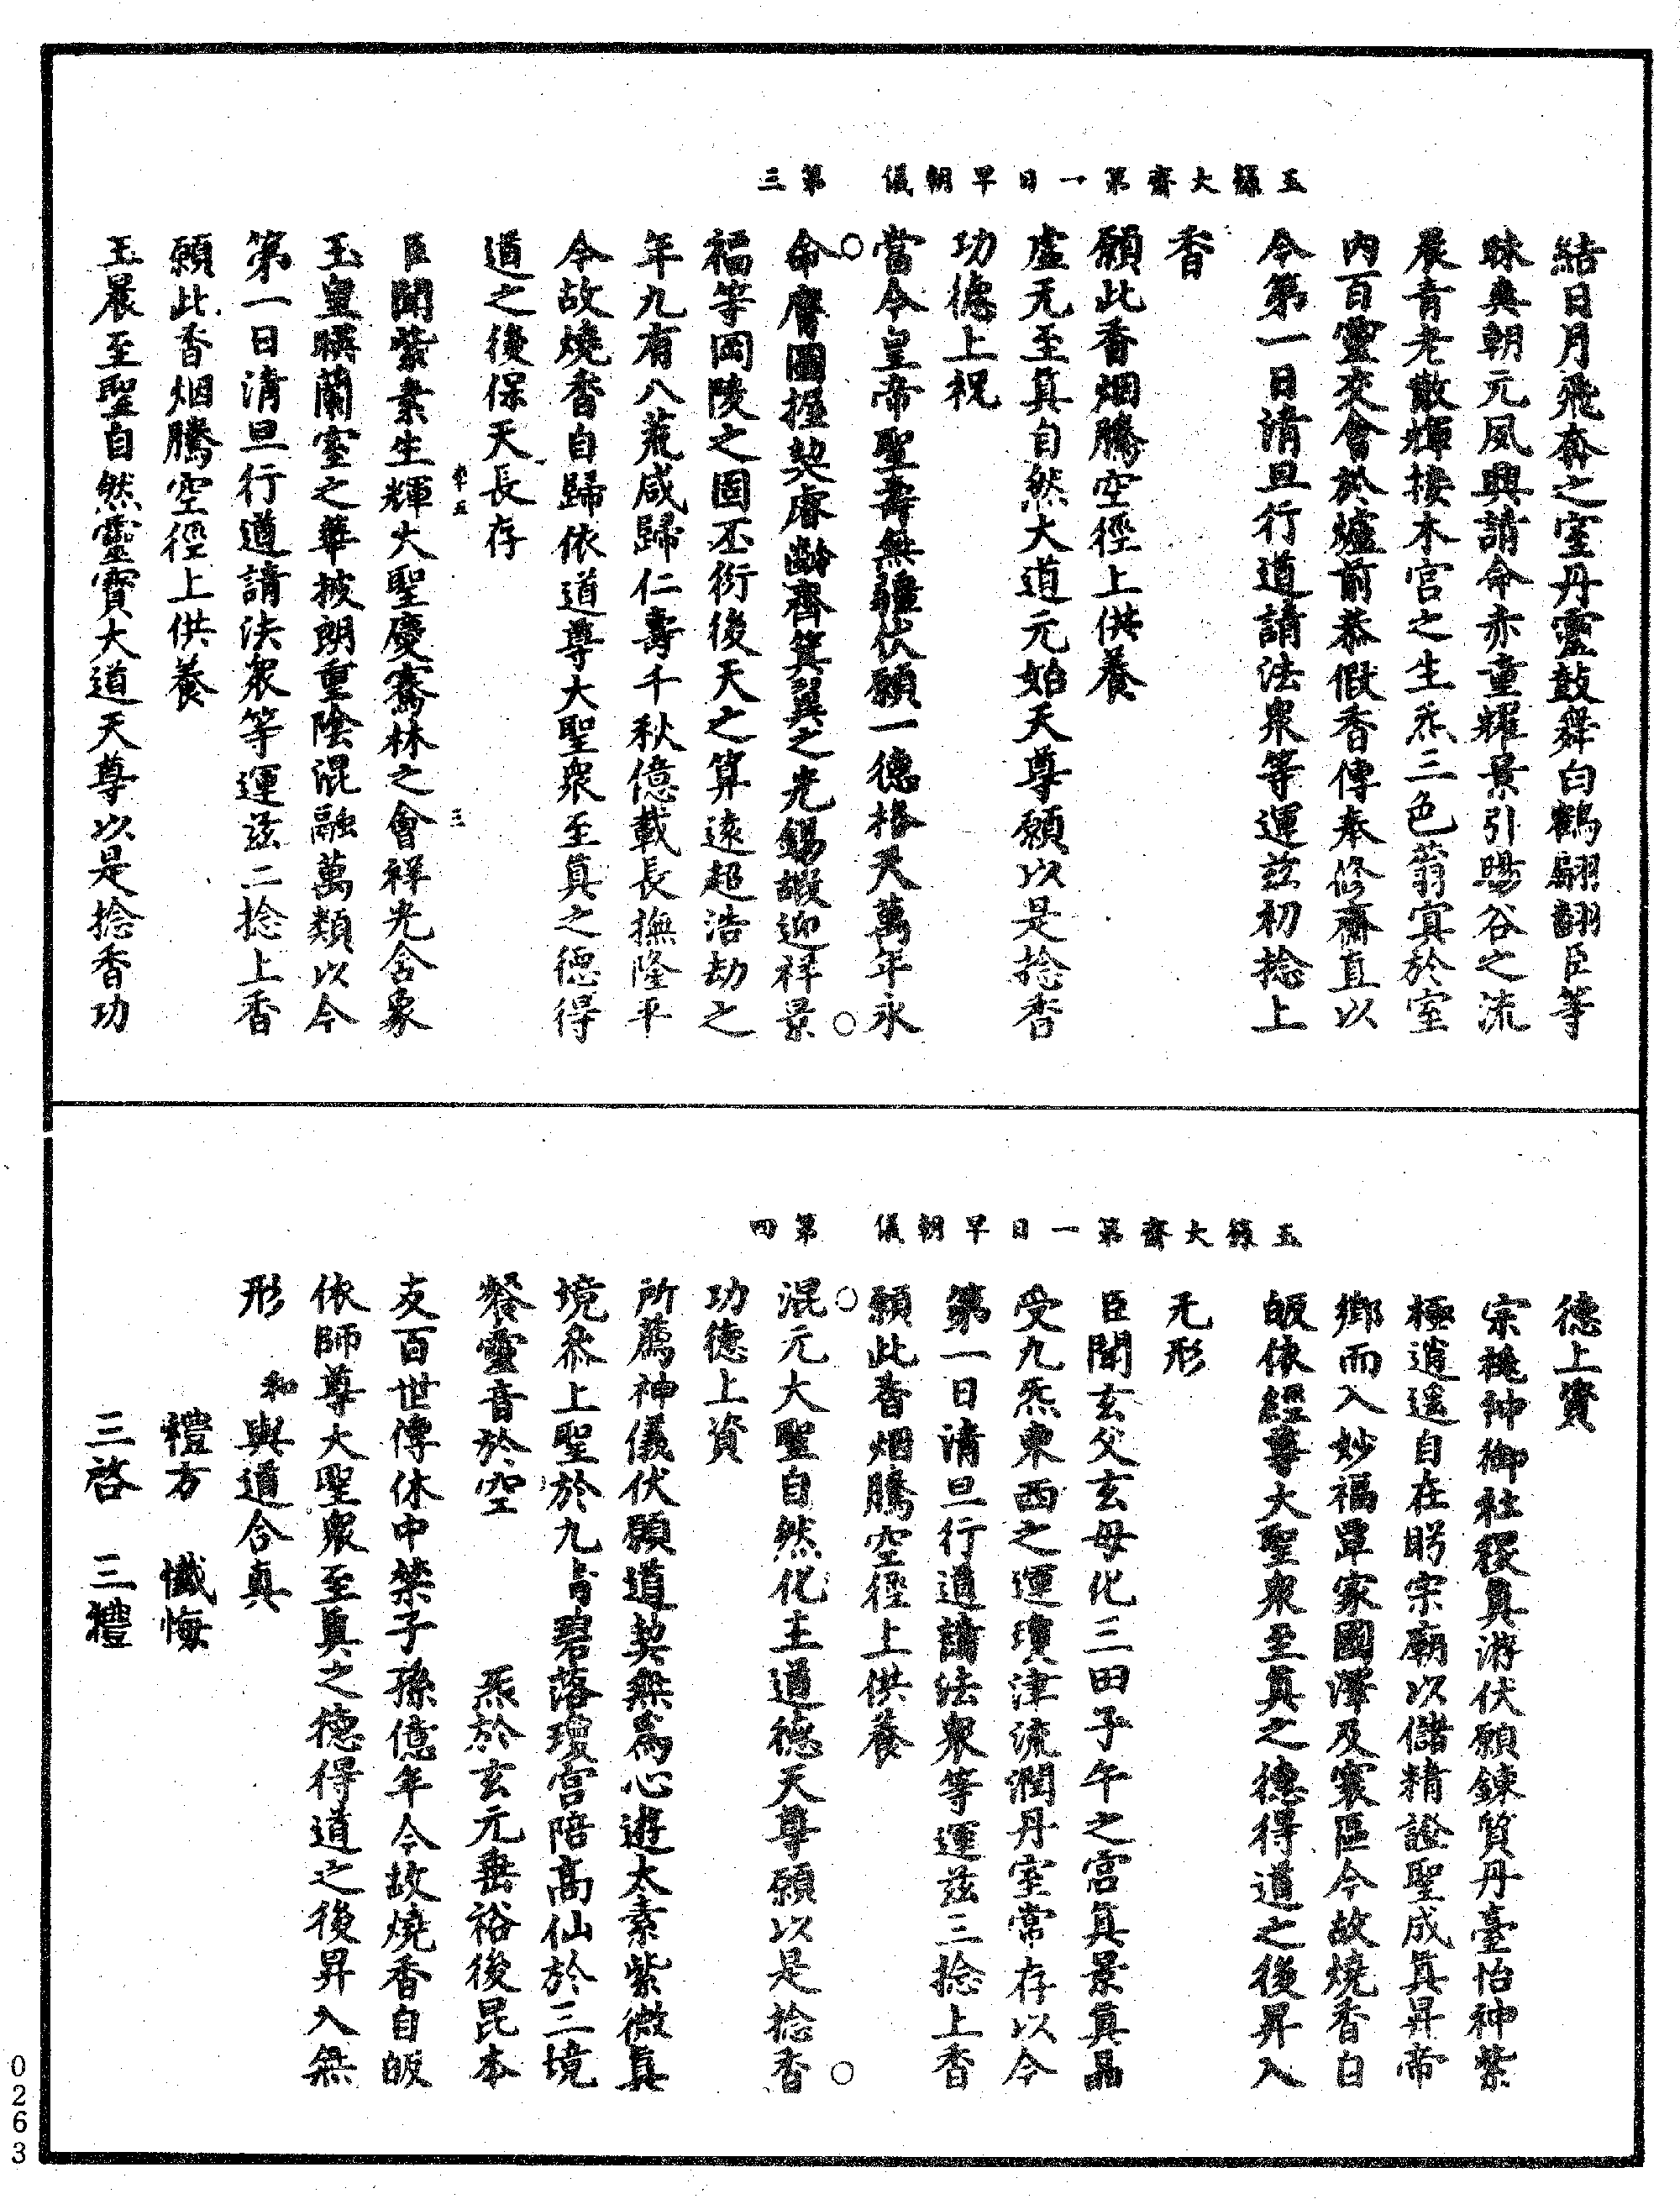 玉籙大齋第一日早朝儀　第三
結日月飛奔之室丹靈鼓舞白鶴翩翻臣等
昧爽朝元夙興請命赤童耀景引暘谷之流
晨青老散輝接木宮之生炁三色蓊寘於室
內百靈交會於爐前恭假香傳奉修齋直以
今第一日清旦行道請法衆等運茲初捻上
香
願此香烟騰空徑上供養
虛无至真自然大道元始天尊願以是捻香
功德上祝
當今皇帝聖壽無疆伏願一德格天萬年永
命膺圖握契睿齡齊箕翼之光錫嘏迎祥景
福等岡陵之固丕衍後天之算遠超浩劫之
年九有八荒咸歸仁壽千秋億載長撫隆平
今故燒香自歸依道尊大聖衆至真之德得
道之後保天長存
三
臣聞紫素生輝大聖慶騫林之會祥光含象
玉皇暎蘭室之華披朗重陰混融萬類以今
第一日清旦行道請法衆等運茲二捻上香
願此香烟騰空徑上供養
玉晨至聖自然靈寶大道天尊以是捻香功
玉籙大齋第一日早朝儀　第四
德上資
宗祧神御社稷真游伏願鍊質丹臺怡神紫
極逍遥自在眄宗廟以儲精證聖成真昇帝
鄉而入妙福覃家國澤及寰區今故燒香自
皈依經尊大聖衆至真之德得道之後昇入
无形
臣聞玄父玄母化三田子午之宮真景真晶
受九炁東西之運瓊津流潤丹室常存以今
第一日清旦行道請法衆等運茲三捻上香
願此香烟騰空徑上供養
混元大聖自然化主道德天尊願以是捻香
功德上資
所薦神儀伏願道契無為心遊太素紫微真
境叅上聖於九碧落瓊宮陪高仙於三境
餐靈音於空　炁於玄元垂裕後昆本
支百世傳休中禁子孫億年今故燒香自皈
依師尊大聖衆至真之德得道之後昇入無
形　和與道合真
禮方　懺悔
三啓　三禮
0263